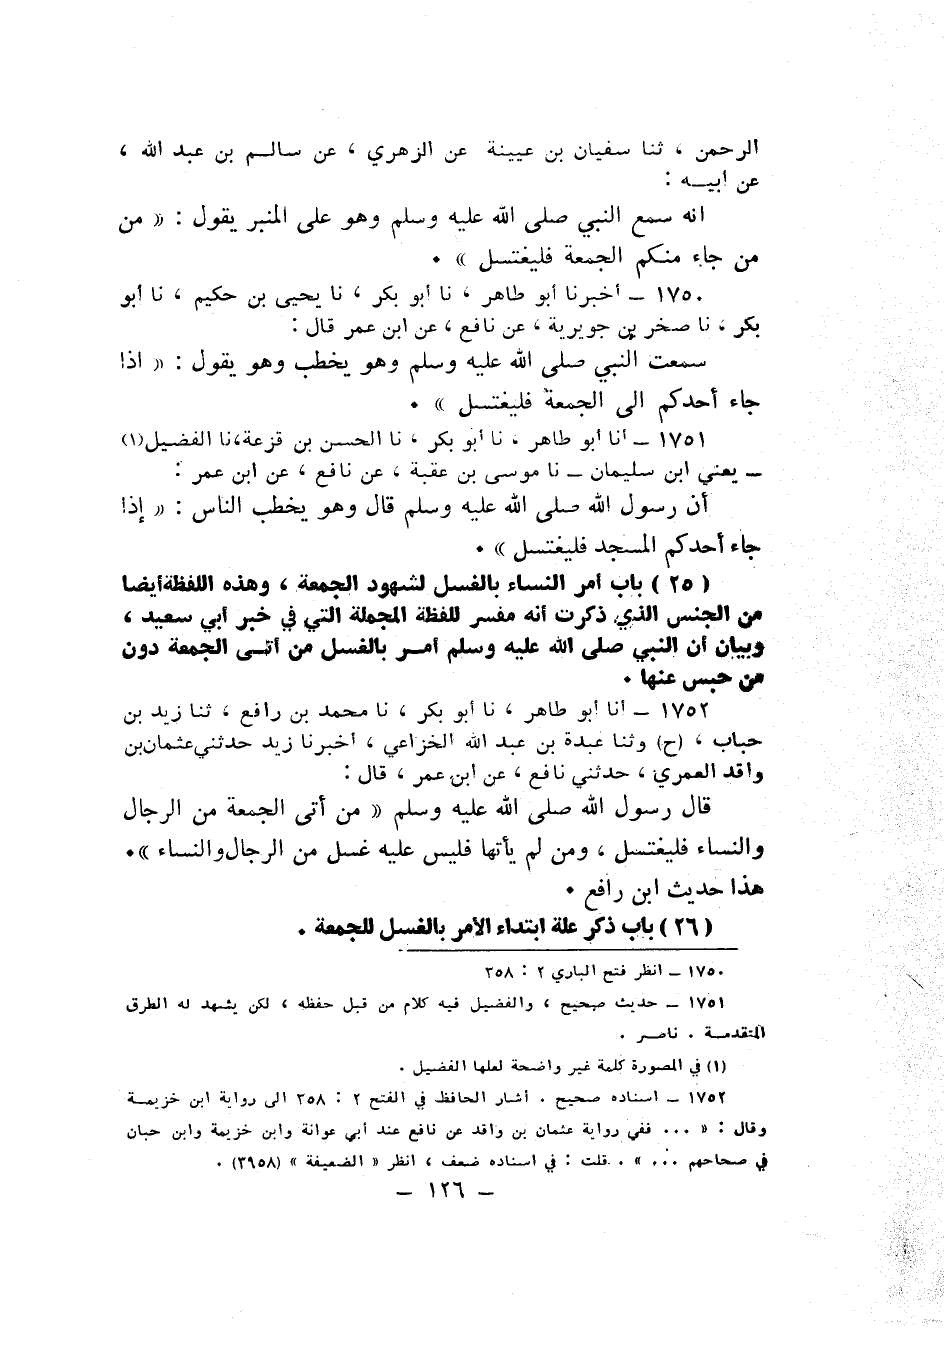 الرحمن ، ثنا سفيان بن عيينة عن الزهري ، عن سالم بن عبد الله ،
عن أبيه :
انه سمع النبي صلى الله عليه وسلم وهو على المنبر يقول : « من
من جاء منكم الجمعة فليغتسل » .
١٧٥٠ – أخبرنا أبو طاهر ، نا أبو بكر ، نا يحيى بن حكيم ، نا أبو
بكر ، نا صخر بن جويرية ، عن نافع ، عن ابن عمر قال :
سمعت النبي صلى الله عليه وسلم وهو يخطب وهو يقول : « اذا
جاء أحدكم الى الجمعة فليغتسل » .
١٧٥١ – أنا أبو طاهر ، نا أبو بكر ، نا الحسن بن قزعة، نا الفضيل(١)
– يعني ابن سليمان – نا موسى بن عقبة ، عن نافع ، عن ابن عمر :
أن رسول الله صلى الله عليه وسلم قال وهو يخطب الناس : « إذا
جاء أحدكم المسجد فليغتسل » .
( ٢٥ ) باب أمر النساء بالغسل لشهود الجمعة ، وهذه اللفظة أيضا
من الجنس الذي ذكرت أنه مفسر للفظة المجملة التي في خبر أبي سعيد ،
وبيان أن النبي صلى الله عليه وسلم أمر بالغسل من أتى الجمعة دون
من حبس عنها .
١٧٥٢ – أنا أبو طاهر ، نا أبو بكر ، نا محمد بن رافع ، ثنا زيد بن
حباب ، (ح) وثنا عبدة بن عبد الله الخزاعي ، أخبرنا زيد حدثني عثمان بن
واقد العمري ، حدثني نافع ، عن ابن عمر ، قال :
قال رسول الله صلى الله عليه وسلم « من أتى الجمعة من الرجال
والنساء فليغتسل ، ومن لم يأتها فليس عليه غسل من الرجال والنساء » .
هذا حديث ابن رافع .
( ٢٦ ) باب ذكر علة ابتداء الأمر بالغسل للجمعة .
١٧٥٠ – انظر فتح الباري ٢ : ٣٥٨
١٧٥١ – حديث صحيح ، والفضيل فيه كلام من قبل حفظه ، لكن يشهد له الطرق
المتقدمة . ناصر .
(١) في المصورة كلمة غير واضحة لعلها الفضيل .
١٧٥٢ – اسناده صحيح . أشار الحافظ في الفتح ٢ : ٣٥٨ الى رواية ابن خزيمة
وقال : « ... ففي رواية عثمان بن واقد عن نافع عند أبي عوانة وابن خزيمة وابن حبان
في صحاحهم ... » . قلت : في اسناده ضعف ، انظر « الضعيفة » (٣٩٥٨) .
– ١٢٦ –